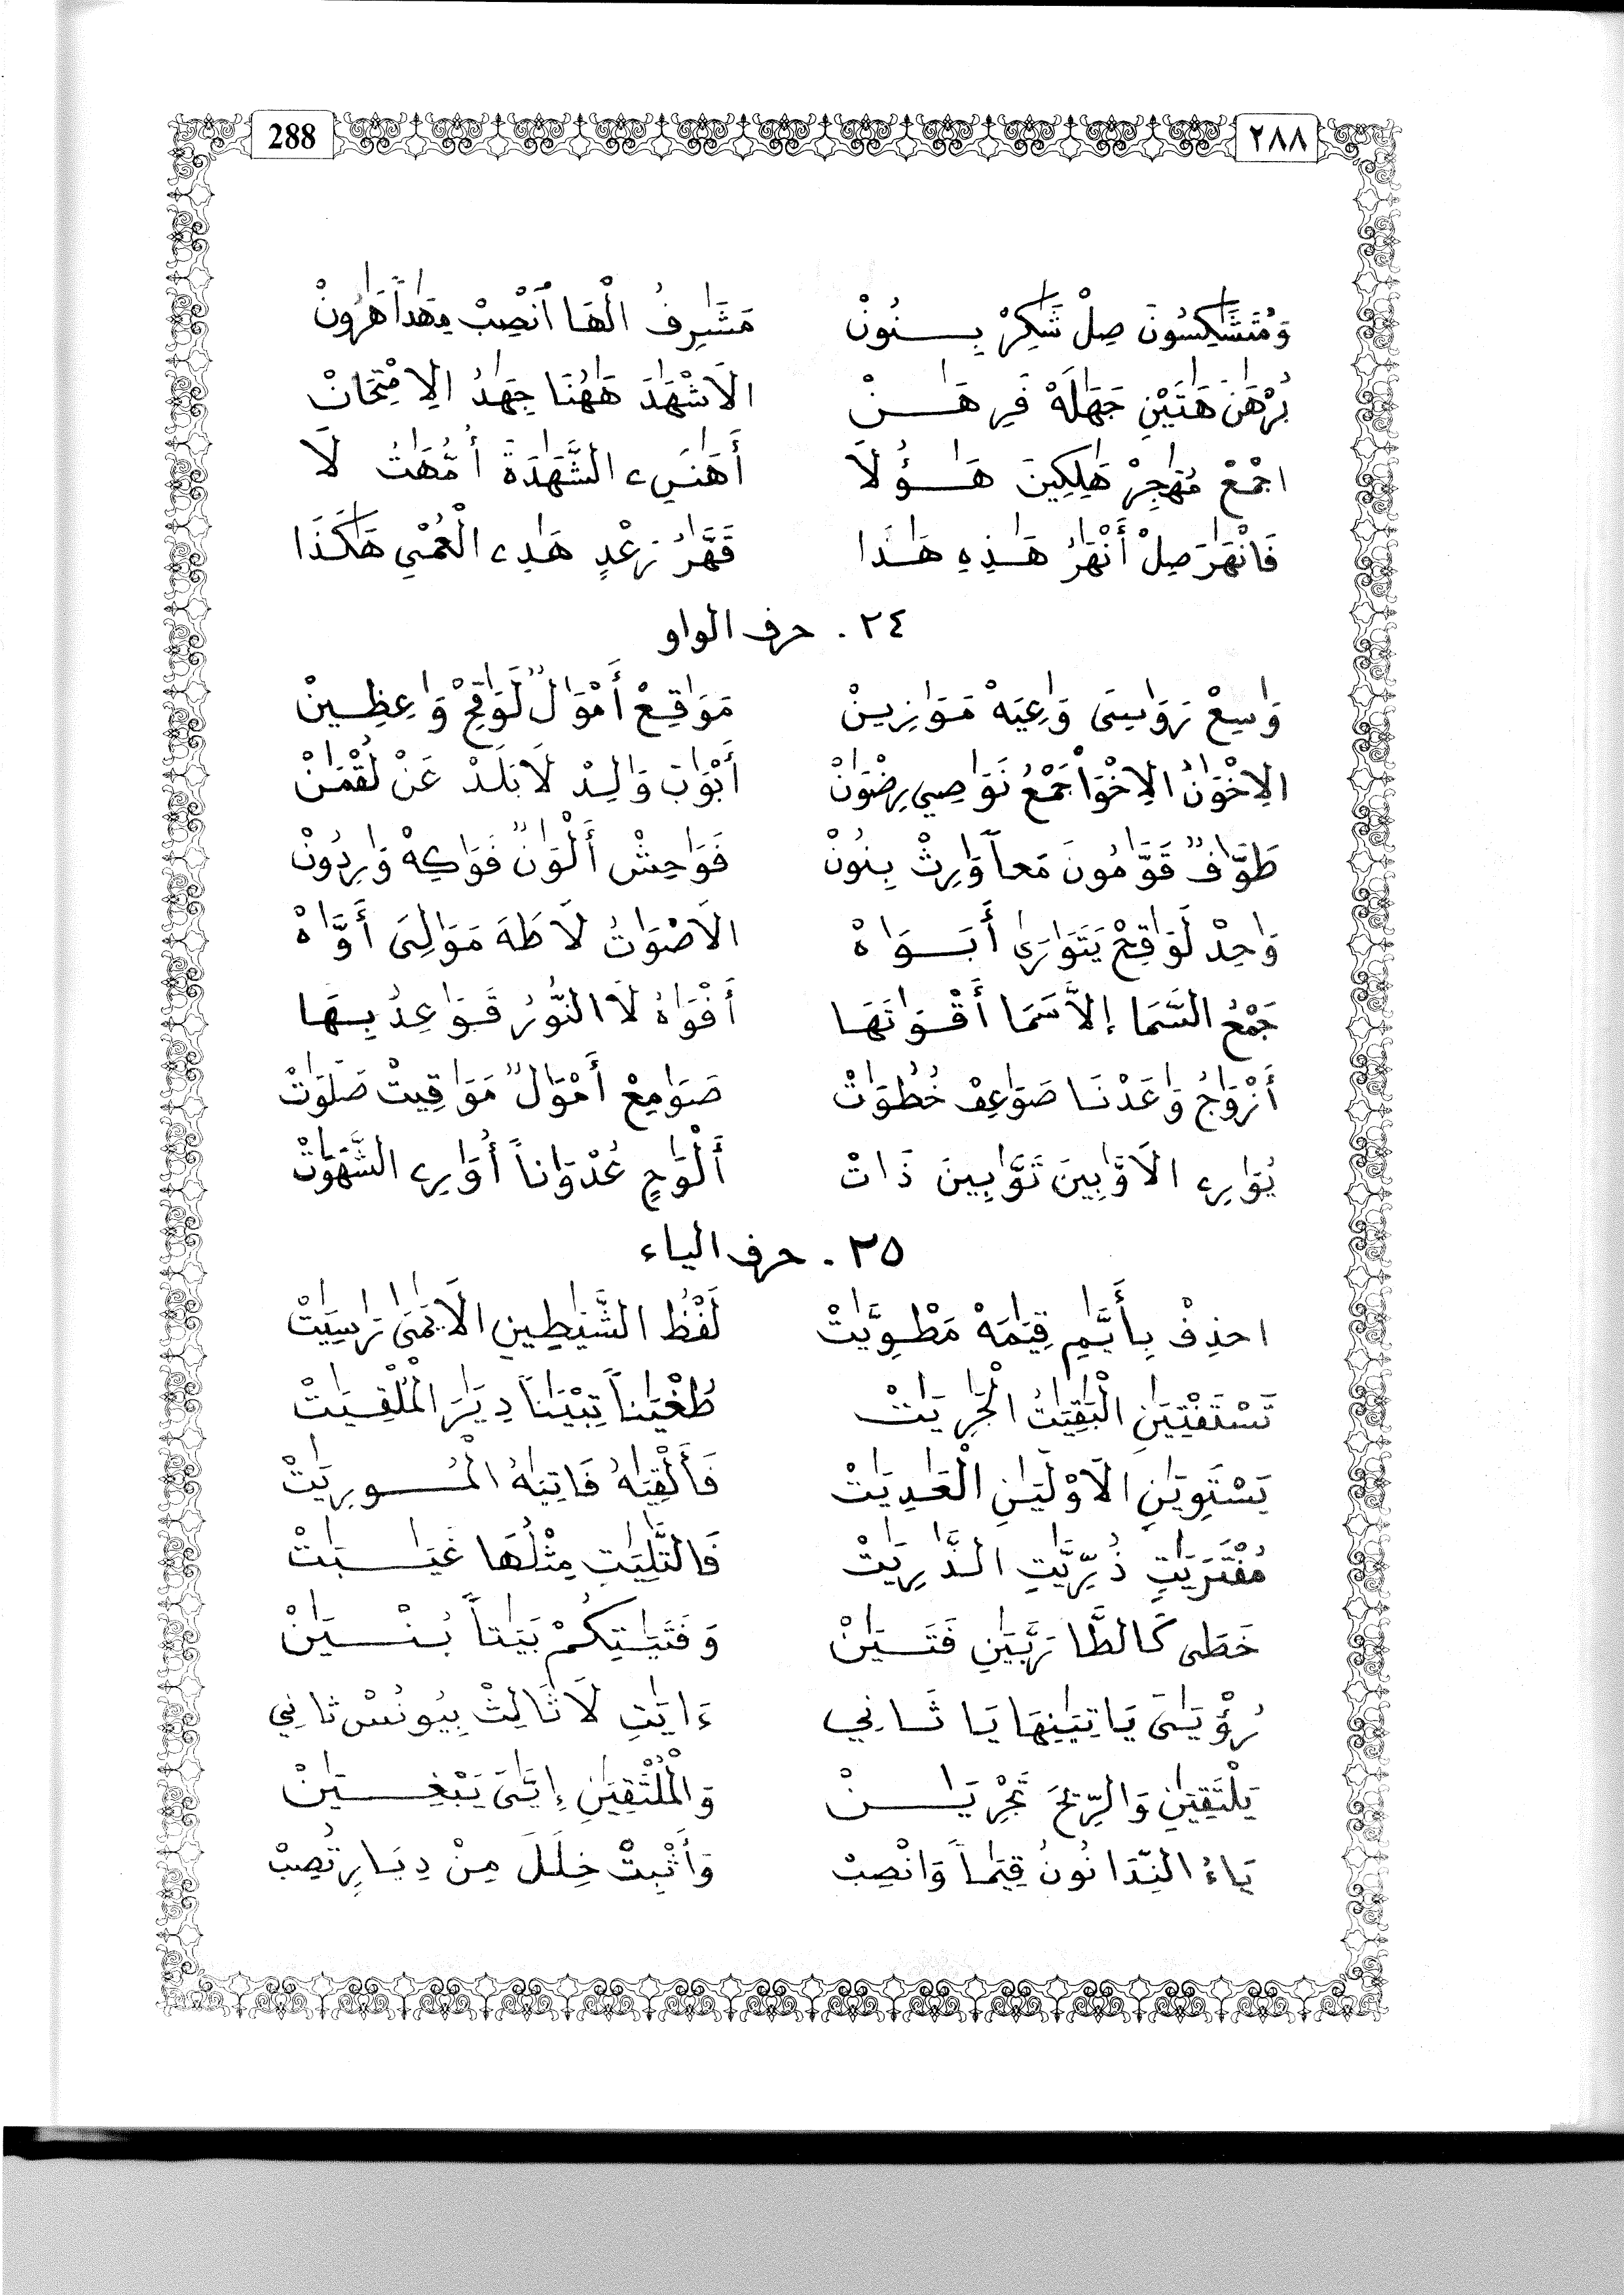 288 ٢٨٨
وَمُتَشَٰكِسُونَ صِلْ شَٰكِرْ بِنُونْ مَشَٰرِقُ الْهَا انْصِبْ مِهَٰداً هَٰرُونْ
بُرْهَٰنَ هَٰتَيْنِ جَهَٰلَهْ فَرِهَٰنْ الَاشْهَٰدَ هَٰهُنَا جِهَٰدُ الِامْتِحَانْ
اجْمَعْ مُهَٰجِرْ هَٰلِكِينَ هَٰؤُلَا أَهَٰنَنِ الشَّهَٰدَةَ أُمَّهَٰتُ لَا
فَانْهَٰرَ صِلْ أَنْهَٰرُ هَٰذِهِ هَٰذَا قَهَّٰرُ رَعْدٍ هَٰدِ الْعُمْيِ هَٰكَذَا
٢٤. حرف الواو
وَٰسِعْ رَوَٰسِىَ وَٰعِيَهْ مَوَٰزِينْ مَوَٰقِعْ أَمْوَٰلٌ لَوَٰقِحْ وَٰعِظِينْ
الِاخْوَٰنُ الِاخْوَٰ جَمْعُ نَوَٰصِي رِضْوَٰنْ أَبْوَٰبَ وَٰلِدْ لَا بَلَدْ عَنْ لُقْمَٰنْ
طَوَّٰفٌ قَوَّٰمُونَ مَعاً وَٰرِثْ بِنُونْ فَوَٰحِشْ أَلْوَٰنٌ فَوَٰكِهْ وَٰرِدُونْ
وَٰحِدْ لَوَٰقِحْ يَتَوَٰرَىٰ أَبَوَٰهْ الَاصْوَٰتُ لَا طَهَ مَوَٰلِىَ أَوَّٰهْ
جَمْعُ السَّمَا إلاَّ سَمَا أَقْوَٰتَهَا أَفْوَٰهُ لَا النُّورُ قَوَٰعِدُ بِهَا
أَزْوَٰجُ وَٰعَدْنَا صَوَٰعِقْ خُطُوَٰتْ صَوَٰمِعْ أَمْوَٰلٌ مَوَٰقِيتْ صَلَوَٰتْ
يُوَٰرِے الَاوَّٰبِينَ تَوَّٰبِينَ ذَاتْ أَلْوَٰحٍ عُدْوَٰناً أُوَٰرِے الشَّهَوَٰتْ
٢٥. حرف الياء
احذِفْ بِأَيَّٰمِ قِيَٰمَهْ مَطْوِيَّٰتْ لَفْظُ الشَّيَٰطِينِ الَايَٰمَىٰ رَٰسِيَٰتْ
تَسْتَفْتِيَٰنِ الْبَٰقِيَٰتُ الْجَٰرِيَٰتْ طُغْيَٰناً تِبْيَٰناً دِيَٰرَ الْمُلْقِيَٰتْ
يَسْتَوِيَٰنِ الَاوْلَيَٰنِ الْعَٰدِيَٰتْ فَأَلْقِيَٰهُ فَاتِيَٰهُ الْمُورِيَٰتْ
مُفْتَرَيَٰتٍ ذُرِّيَّٰتِ الذَّٰرِيَٰتْ فَالتَّٰلِيَٰتِ مِثْلُهَا غَيَٰبَٰتْ
خَطَىٰ كَالطَّا رَبَّيَٰنِ فَتَيَٰنْ وَفَتَيَٰتِكُمْ بَيَٰتاً بُنْيَٰنْ
رُؤْيَٰىَ يَاتِيَٰنِهَا يَا ثَانِي ءَايَٰتِ لَا ثَالِثْ بِيُونُسْ ثانِي
يَلْتَقِيَٰنِ وَالرِّيَٰحَ تَجْرِيَٰنْ وَالْمُلْتَقِيَٰنِ إِيَّٰىَ يَبْغِيَٰنْ
يَاءُ النِّدَا نُونُ قِيَٰماً وَانْصِبْ وَأَثْبِتْ خِلَٰلَ مِنْ دِيَارٍ تُصِبْ